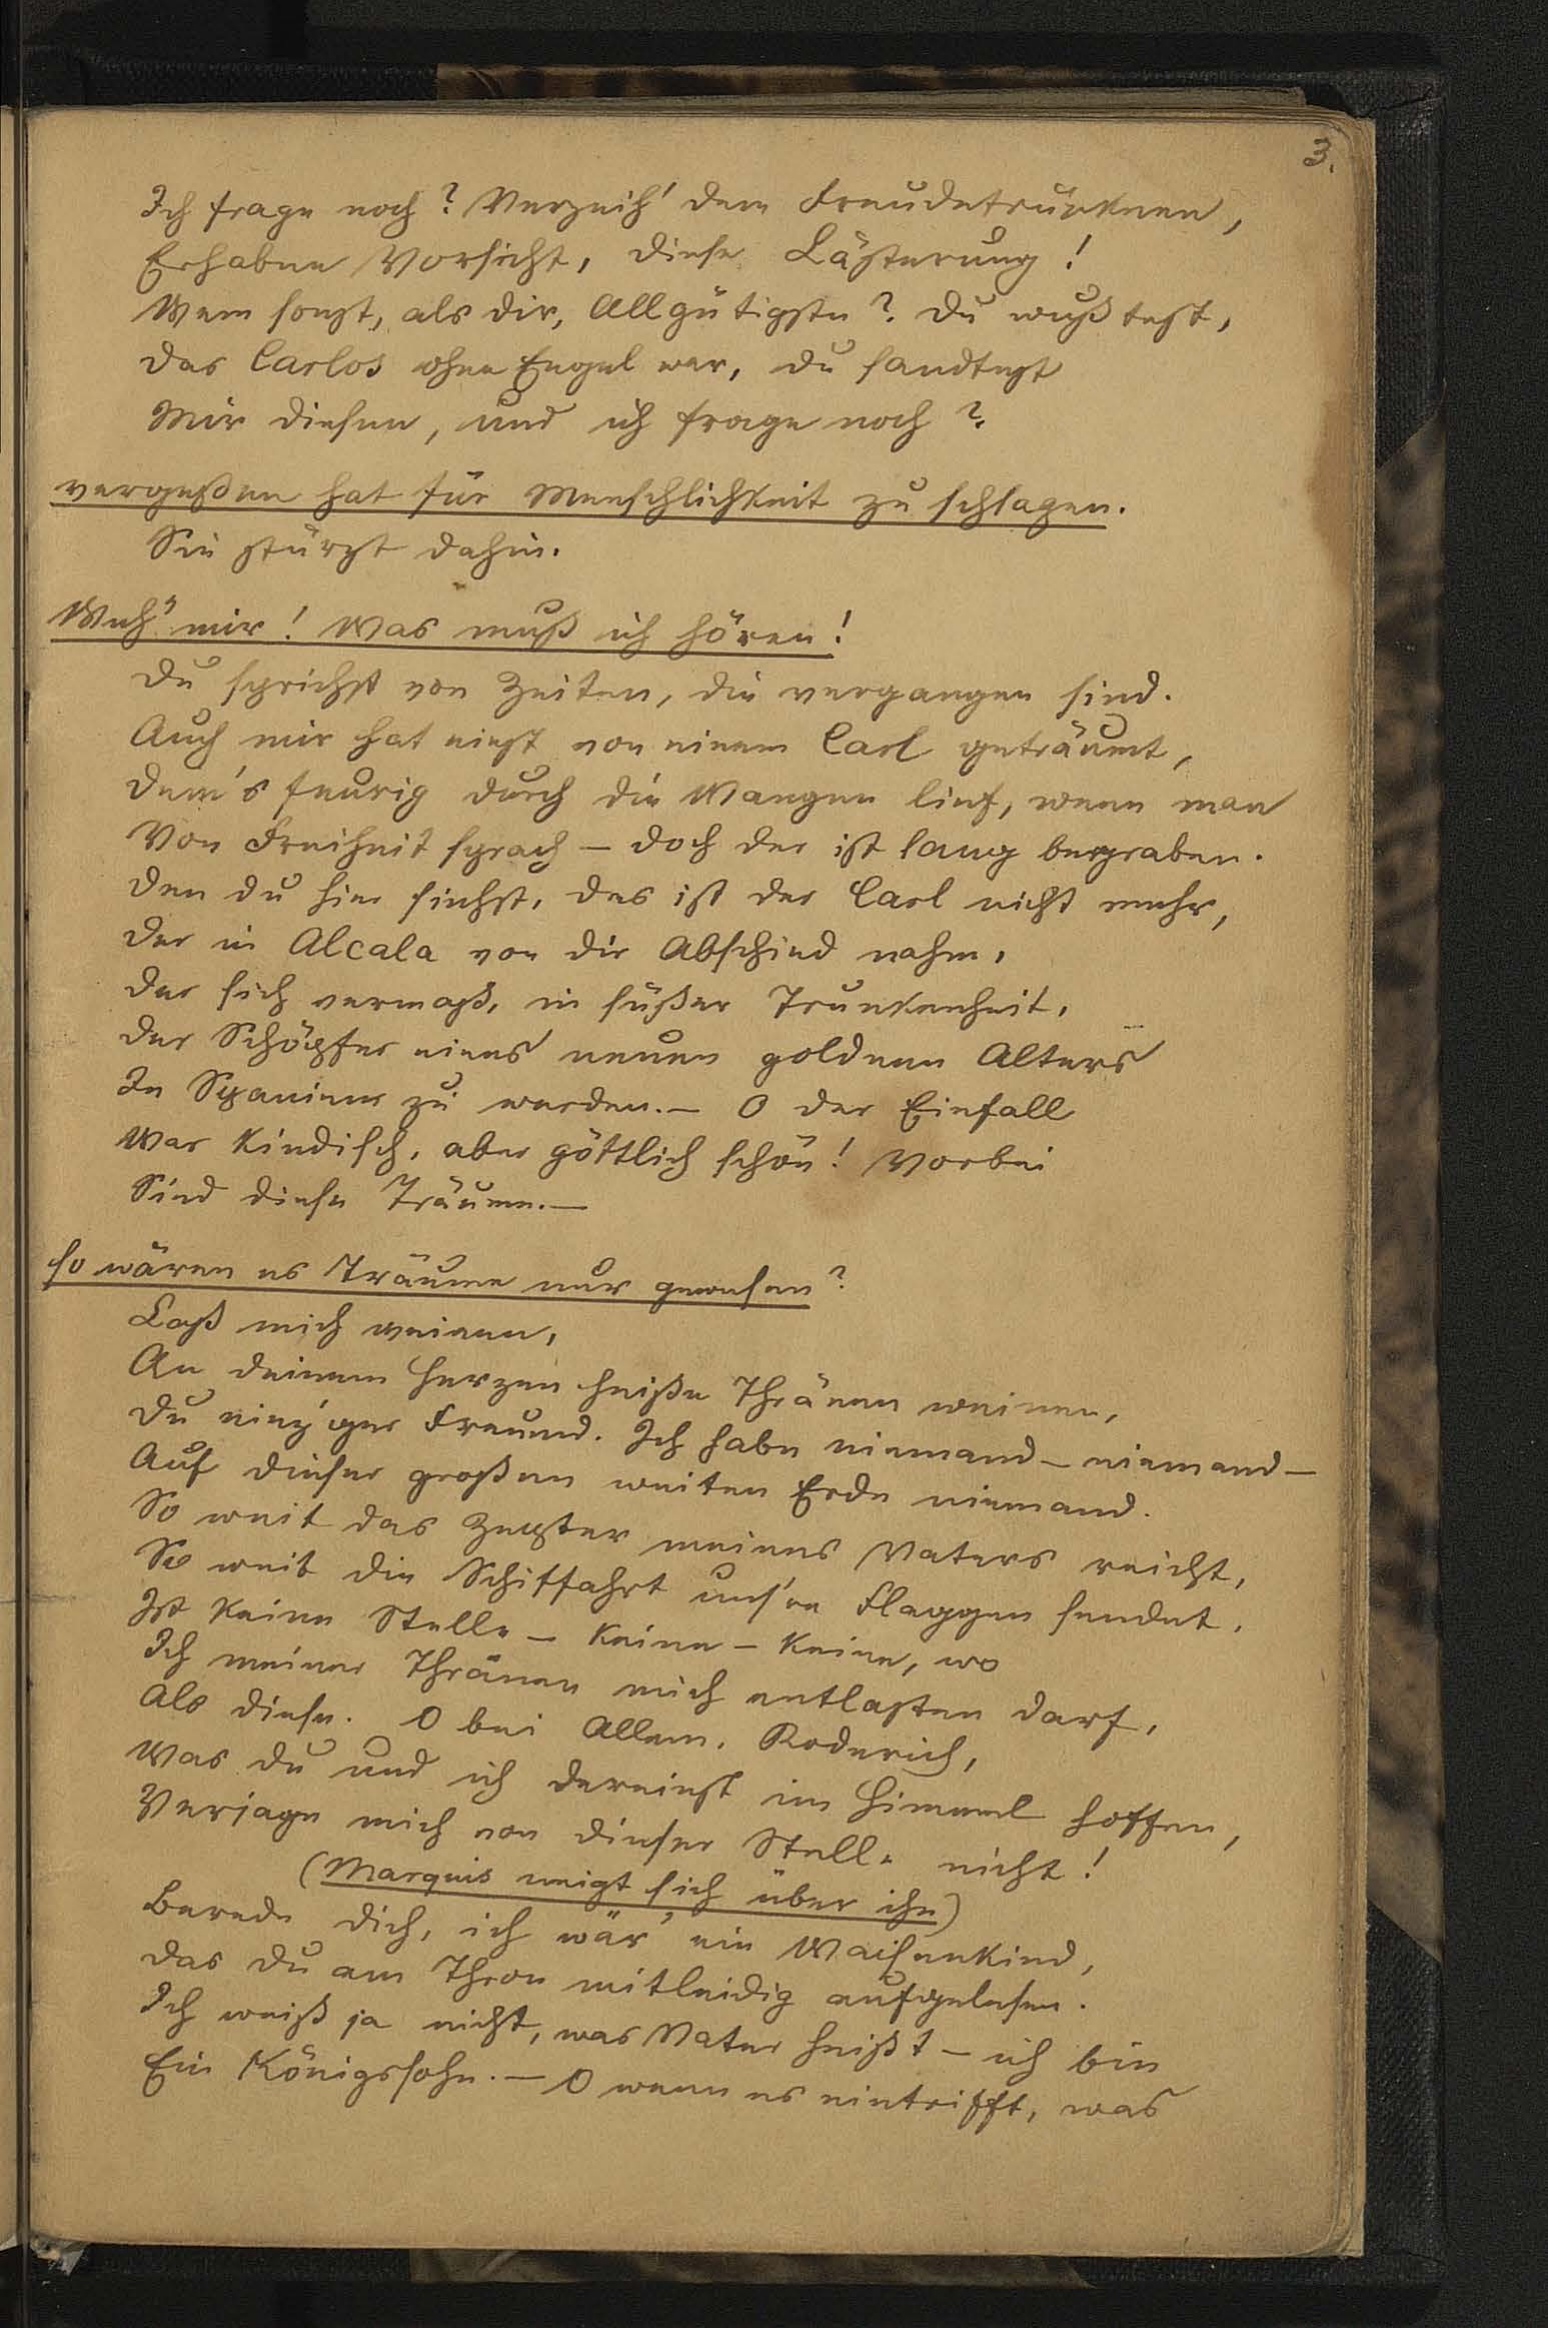 3.
Ich frage noch? Verzeih' dem Freudetrunknen,
Erhabne Vorsicht, diese Lästerung!
Wem sonst, als dir, Allgütigste? Du wußtest,
Das Carlos ohne Engel war, du sandtest
Mir diesen, und ich frage noch?
vergeßen hat für Menschlichkeit zu schlagen.
Sie stürzt dahin.
Weh' mir! Was muß ich hören!
Du sprichst von Zeiten, die vergangen sind.
Auch mir hat einst von einem Carl geträumt,
Dem's feurig durch die Wangen lief, wenn man
Von Freiheit sprach – doch der ist lang begraben.
Den du hier siehst, das ist der Carl nicht mehr,
Der in Alcala von dir Abschied nahm,
Der sich vermaß, in süßer Trunkenheit,
Der Schöpfer eines neuen goldnen Alters
In Spanien zu werden. – O der Einfall
War kindisch, aber göttlich schön! Vorbei
Sind diese Träume. –
So wären es Träume nur gewesen?
Laß mich weinen,
An deinem Herzen heiße Thränen weinen,
Du einz'ger Freund. Ich habe niemand – niemand –
Auf dieser großen weiten Erde niemand.
So weit das Zepter meines Vaters reicht,
So weit die Schiffahrt uns're Flaggen sendet,
Ist keine Stelle – keine – keine, wo
Ich meiner Thränen mich entlasten darf,
Als diese. O bei Allem, Roderich,
Was du und ich dereinst im Himmel hoffen,
Verjage mich von dieser Stelle nicht!
(Marquis neigt sich über ihn)
Berede dich, ich wär' ein Waisenkind,
Das du am Thron mitleidig aufgelesen.
Ich weiß ja nicht, was Vater heißt – ich bin
Ein Königssohn. – O wenn es eintrifft, was